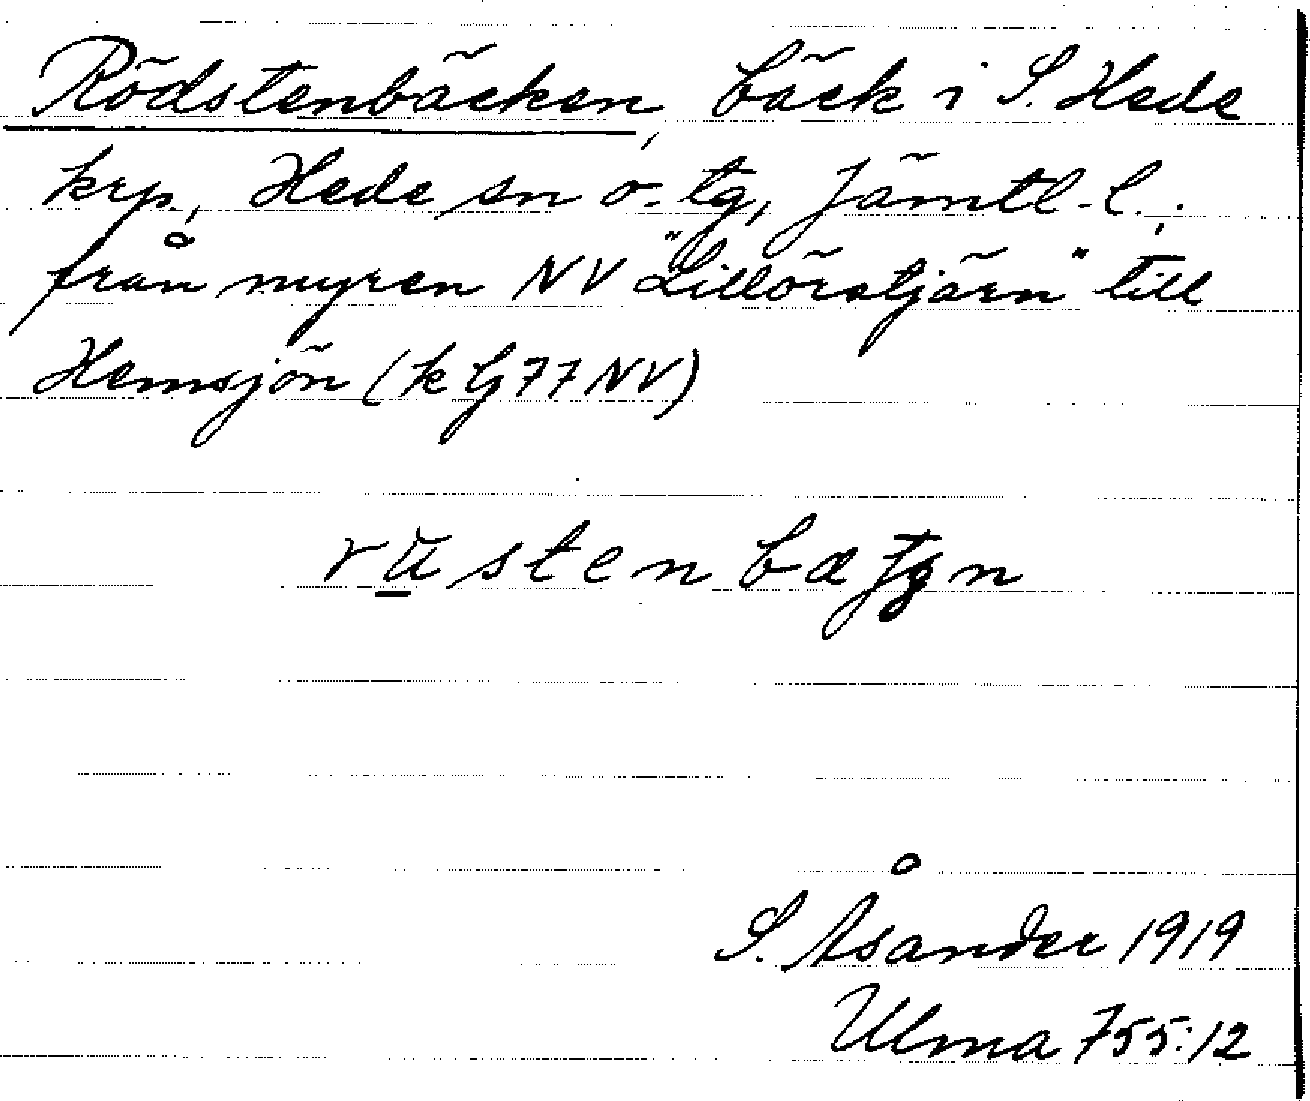 Rödstenbäcken, bäck i S. Hede
krp., Hede sn o. tg, Jämtl. l.;
från myren NV "Lillöratjärn" till
Hemsjön (k G 77 NV)
S. Åsander 1919
Ulma 755:12